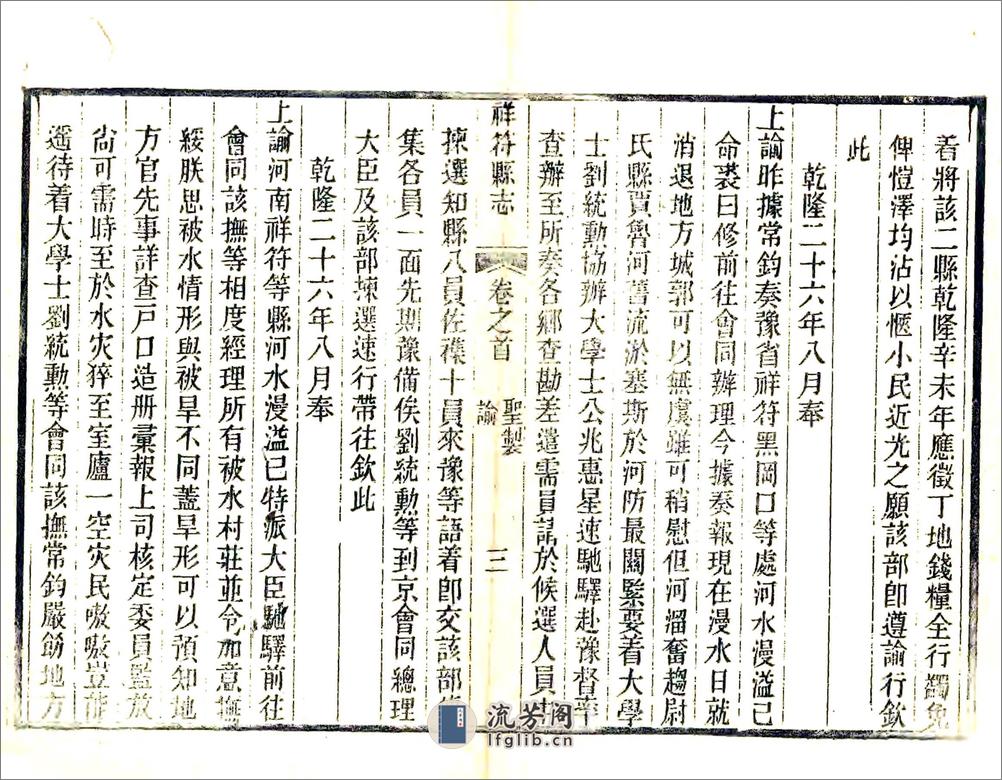 着將該二縣乾隆辛未年應徵丁地錢糧全行蠲免
俾愷澤均沾以愜小民近光之願該部卽遵諭行欽
此
乾隆二十六年八月奉
上諭昨據常鈞奏豫省祥符黑岡口等處河水漫溢已
命裘曰修前往會同辦理今據奏報現在漫水日就
消退地方城郭可以無虞雖可稍慰但河溜奮趨尉
氏縣賈魯河舊流淤塞斯於河防最關緊要着大學
士劉統勳協辦大學士公兆惠星速馳驛赴豫督率
查辦至所奏各鄉查勘差遣需員請於候選人員
祥符縣志
卷之首
聖製
諭
三
揀選知縣八員佐襍十員來豫等語着卽交該部
集各員一面先期豫備俟劉統勳等到京會同總理
大臣及該部揀選速行帶往欽此
乾隆二十六年八月奉
上諭河南祥符等縣河水漫溢已特派大臣馳驛前往
會同該撫等相度經理所有被水村莊並令加意撫
綏朕思被水情形與被旱不同蓋旱形可以預知地
方官先事詳查戸口造册彙報上司核定委員監放
尙可需時至於水灾猝至室廬一空灾民嗷嗷豈能
遥待着大學士劉統勳等會同該撫常鈞嚴飭地方
流芳阁
lfglib.cn